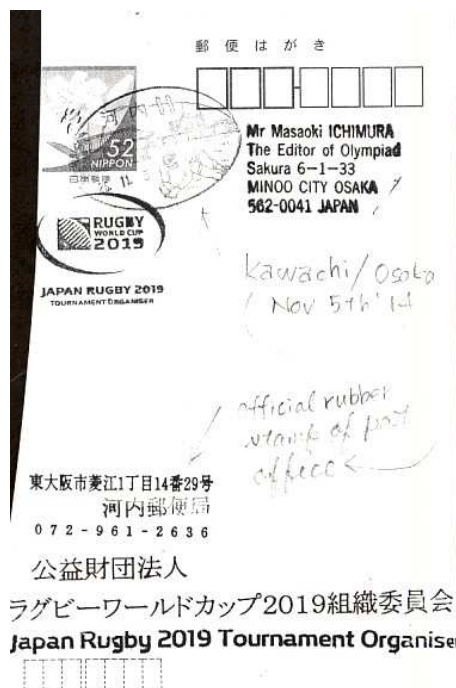 郵便はがき
河内
52
NIPPON
日本郵便
Mr Masaoki ICHIMURA
The Editor of Olympiad
Sakura 6-1-33
MINOO CITY OSAKA
562-0041 JAPAN
RUGBY
WORLD CUP
2019
JAPAN RUGBY 2019
TOURNAMENT ORGANISER
Kawachi/Osaka
Nov 5th '14
official rubber
stamp of post
office
東大阪市菱江1丁目14番29号
河内郵便局
072-961-2636
公益財団法人
ラグビーワールドカップ2019組織委員会
Japan Rugby 2019 Tournament Organise